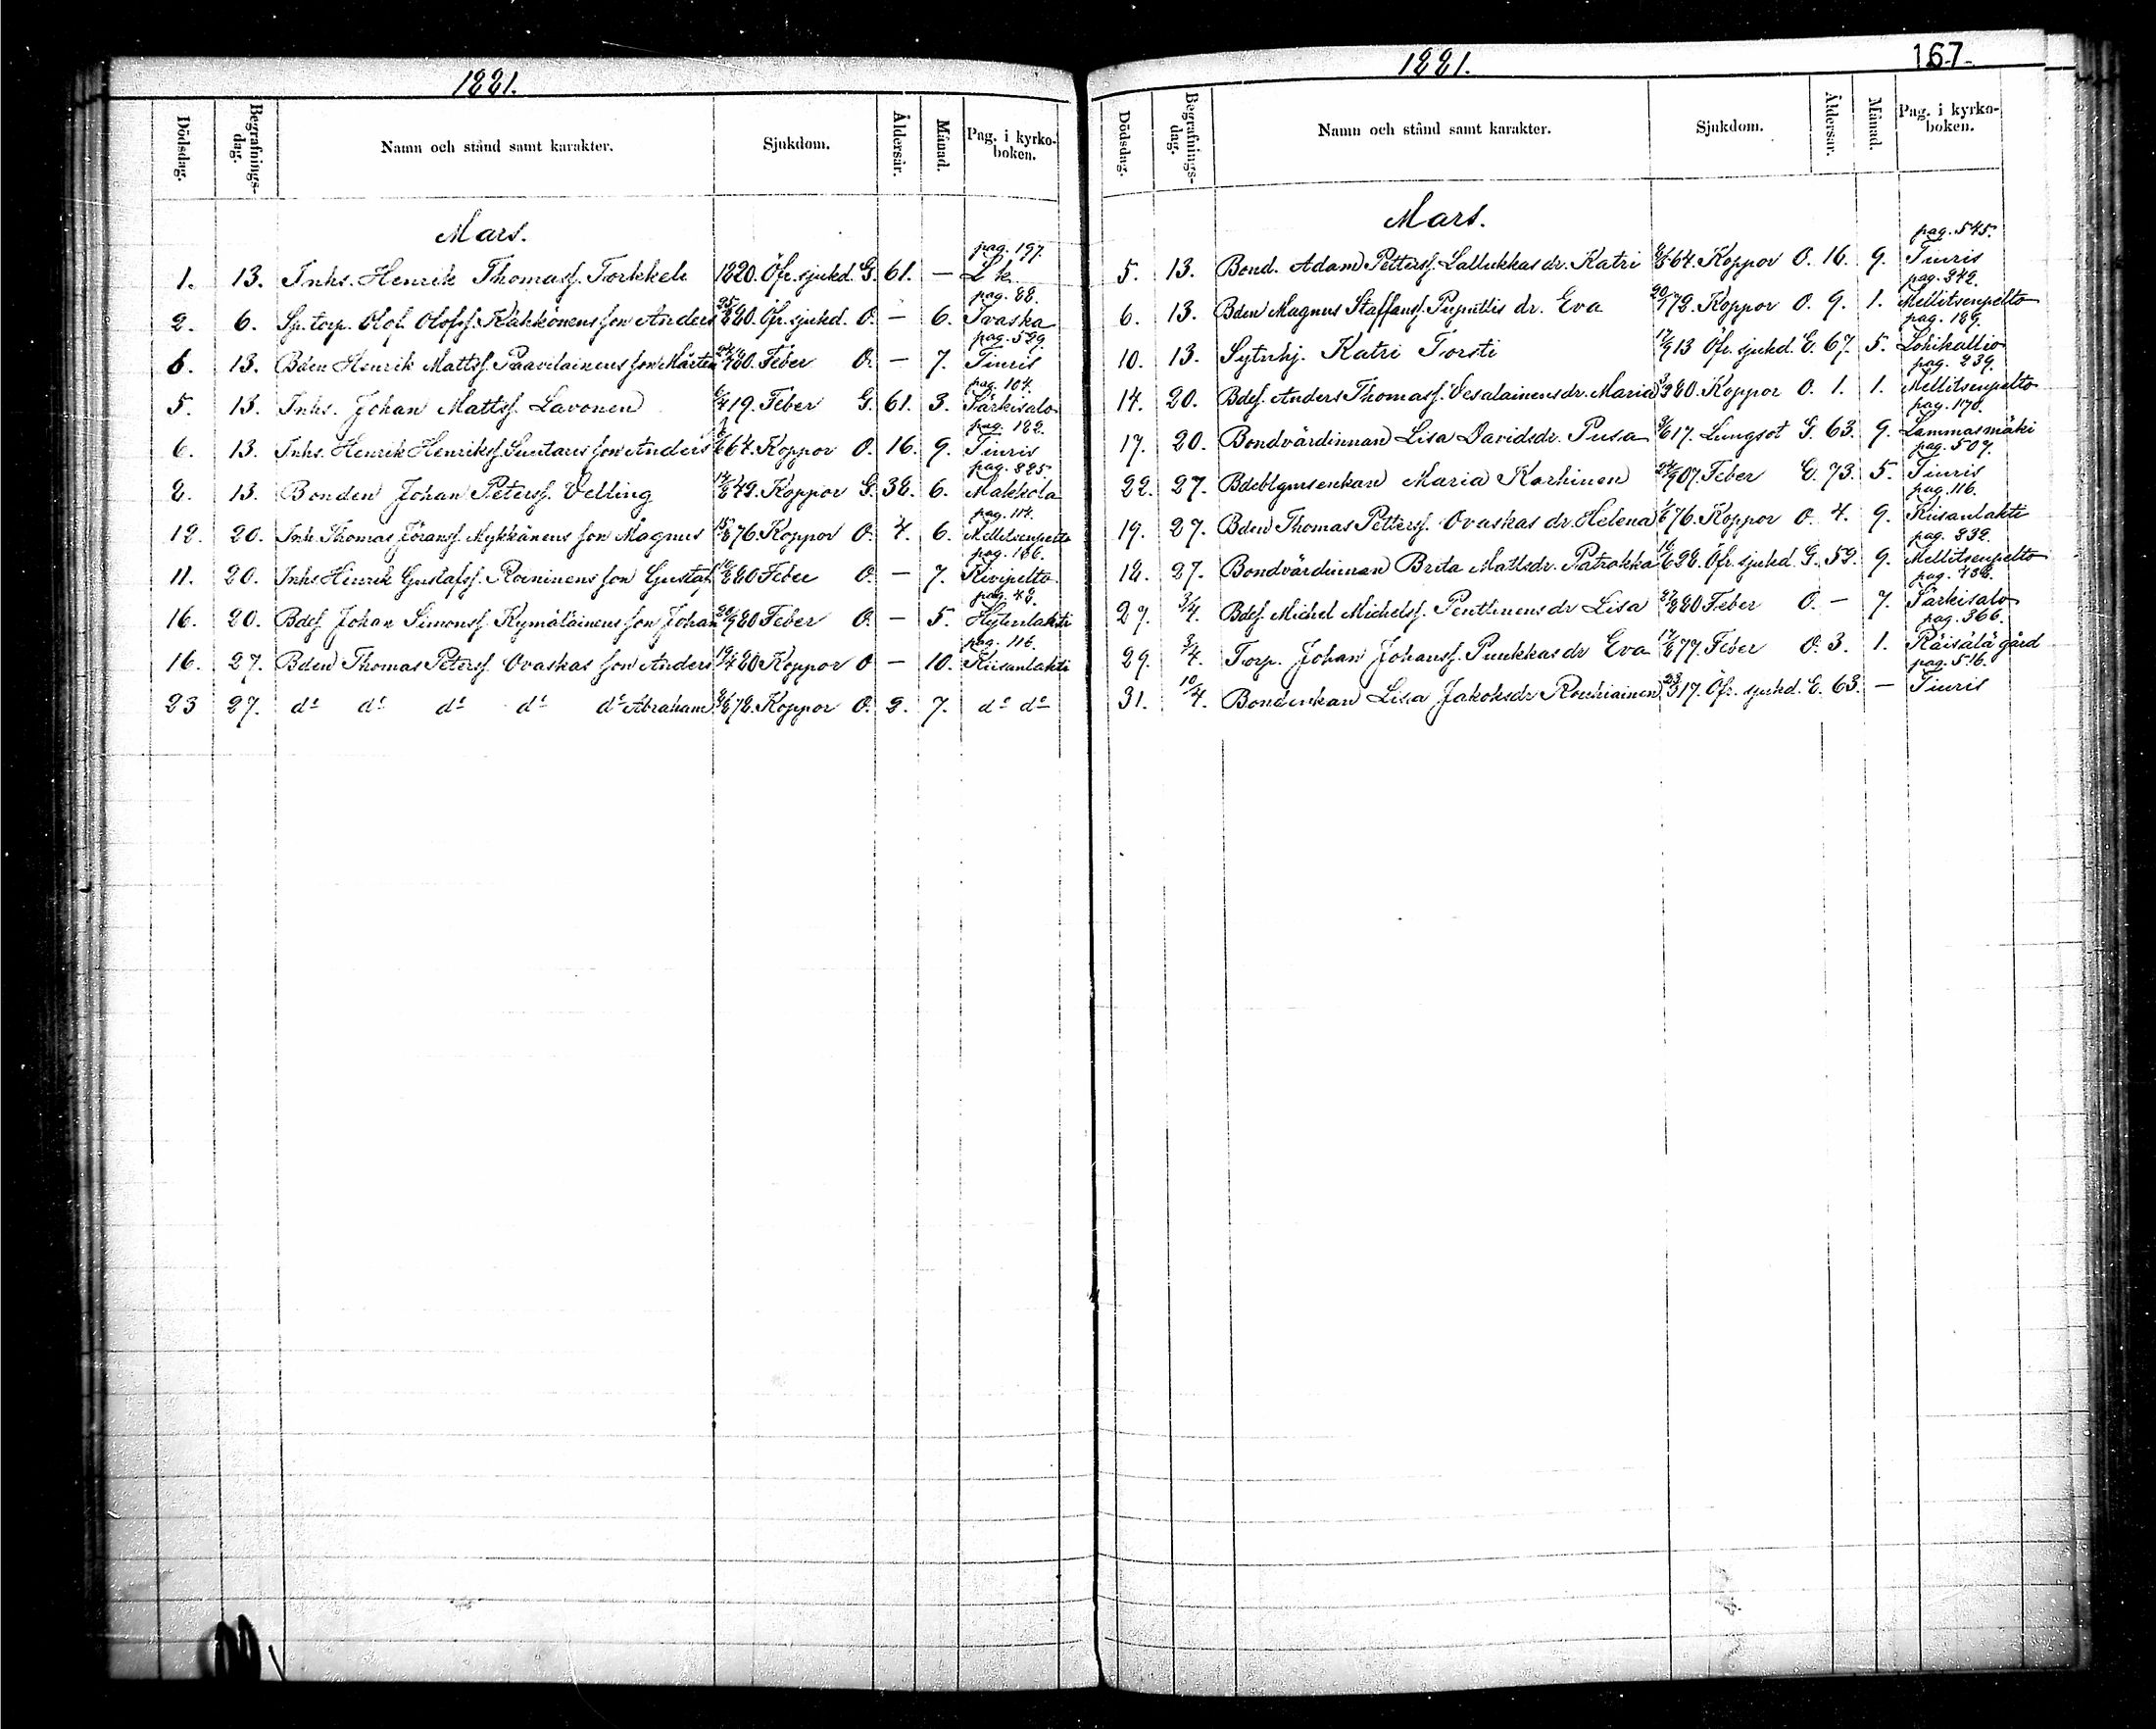 1881.
Dödsdag. Begrafnings-dag. Namn och stånd samt karakter. Sjukdom. Åldersår. Månad. Pag. i kyrko-boken.
Mars.
pag. 197.
1. 13. Inhs. Henrik Thomass. Torkkeli 1820. Öfr. sjukd. G. 61. — L k.
pag. 88.
2. 6. Sp. torp. Olof Olofss. Kähkönens son Anders 25/8 80. Öfr. sjukd. O. — 6. Ivaska
pag. 529.
6. 13. Bden Henrik Mattss. Paavilainens son Mårten 80. Feber O. — 7. Tiuris
pag. 104.
5. 13. Inhs. Johan Mattss. Lavonen 19. Feber G. 61. 3. Särkisalo
pag. 182.
6. 13. Inhs. Henrik Henrikss. Suutaris son Anders 64. Koppor O. 16. 9. Tiuris
pag. 885
8. 13. Bonden Johan Peterss. Velling 42. Koppor G. 38. 6. Makkola
pag. 114.
12. 20. Inh. Thomas Jöranss. Mykkänens son Magnus 15/8 76. Koppor O. 4. 6. Mellitsenpelto
pag. 166.
11. 20. Inhs Henrik Gustafss. Roininens son Gustaf 80 Feber O. — 7. Kivipelto
pag. 48.
16. 20. Bdes. Johan Simonss. Kymäläinens son Johan 20/9 80 Feber O. — 5. Hytinlahti
pag. 116.
16. 27. Bden Thomas Peterss. Ovaskas son Anders 80 Koppor O — 10. Riisanlahti
23 27. do do do do do Abraham 78. Koppor O. 2. 7. do do
1881. 167.
Dödsdag. Begrafnings-dag. Namn och stånd samt karakter. Sjukdom. Åldersår. Månad. Pag. i kyrko-boken.
Mars.
pag. 545.
5. 13. Bond. Adam Petterss. Lallukkas dr. Katri 64. Koppor O. 16. 9. Tiuris
pag. 342.
6. 13. Bden Magnus Staffanss. Puputtis dr. Eva 20/1 72. Koppor O. 9. 1. Mellitsenpelto
pag. 189.
10. 13. Sytnhj. Katri Torsti 17/9 13 Öfr. sjukd. E. 67. 5. Lohikallio
pag. 239.
14. 20. Bdes. Anders Thomass. Vesalainens dr. Maria 80. Koppor O. 1. 1. Mellitsenpelto
pag. 1170.
17. 20. Bondvärdinnan Lisa Davidsdr. Pusa 17. Lungsot G. 63. 9. Lammasmäki
pag. 507.
22. 27. Maria Karhinen 07. Feber E. 73. 5. Tiuris
pag. 116.
19. 27. Bden Thomas Petterss. Ovaskas dr. Helena 76. Koppor O. 4. 9. Riisanlahti
pag. 232.
18. 27. Bondvärdinnan Brita Mattsdr. Patrakka 28. Öfr. sjukd. G. 52. 9. Mellitsenpelto
pag. 438.
27. 3/4. Bdes. Michel Michelss. Penttinens dr Lisa 80 Feber O. — 7. Särkisalo
pag. 366.
29. 3/4. Torp. Johan Johanss. Puukkas dr Eva 77. Feber O. 3. 1. Räisälä gård
pag. 516.
31. 10/4. Bondenkan Lisa Jakobsdr Rouhiainen 23/3 17. Öfr. sjukd. E. 63. — Tiuris